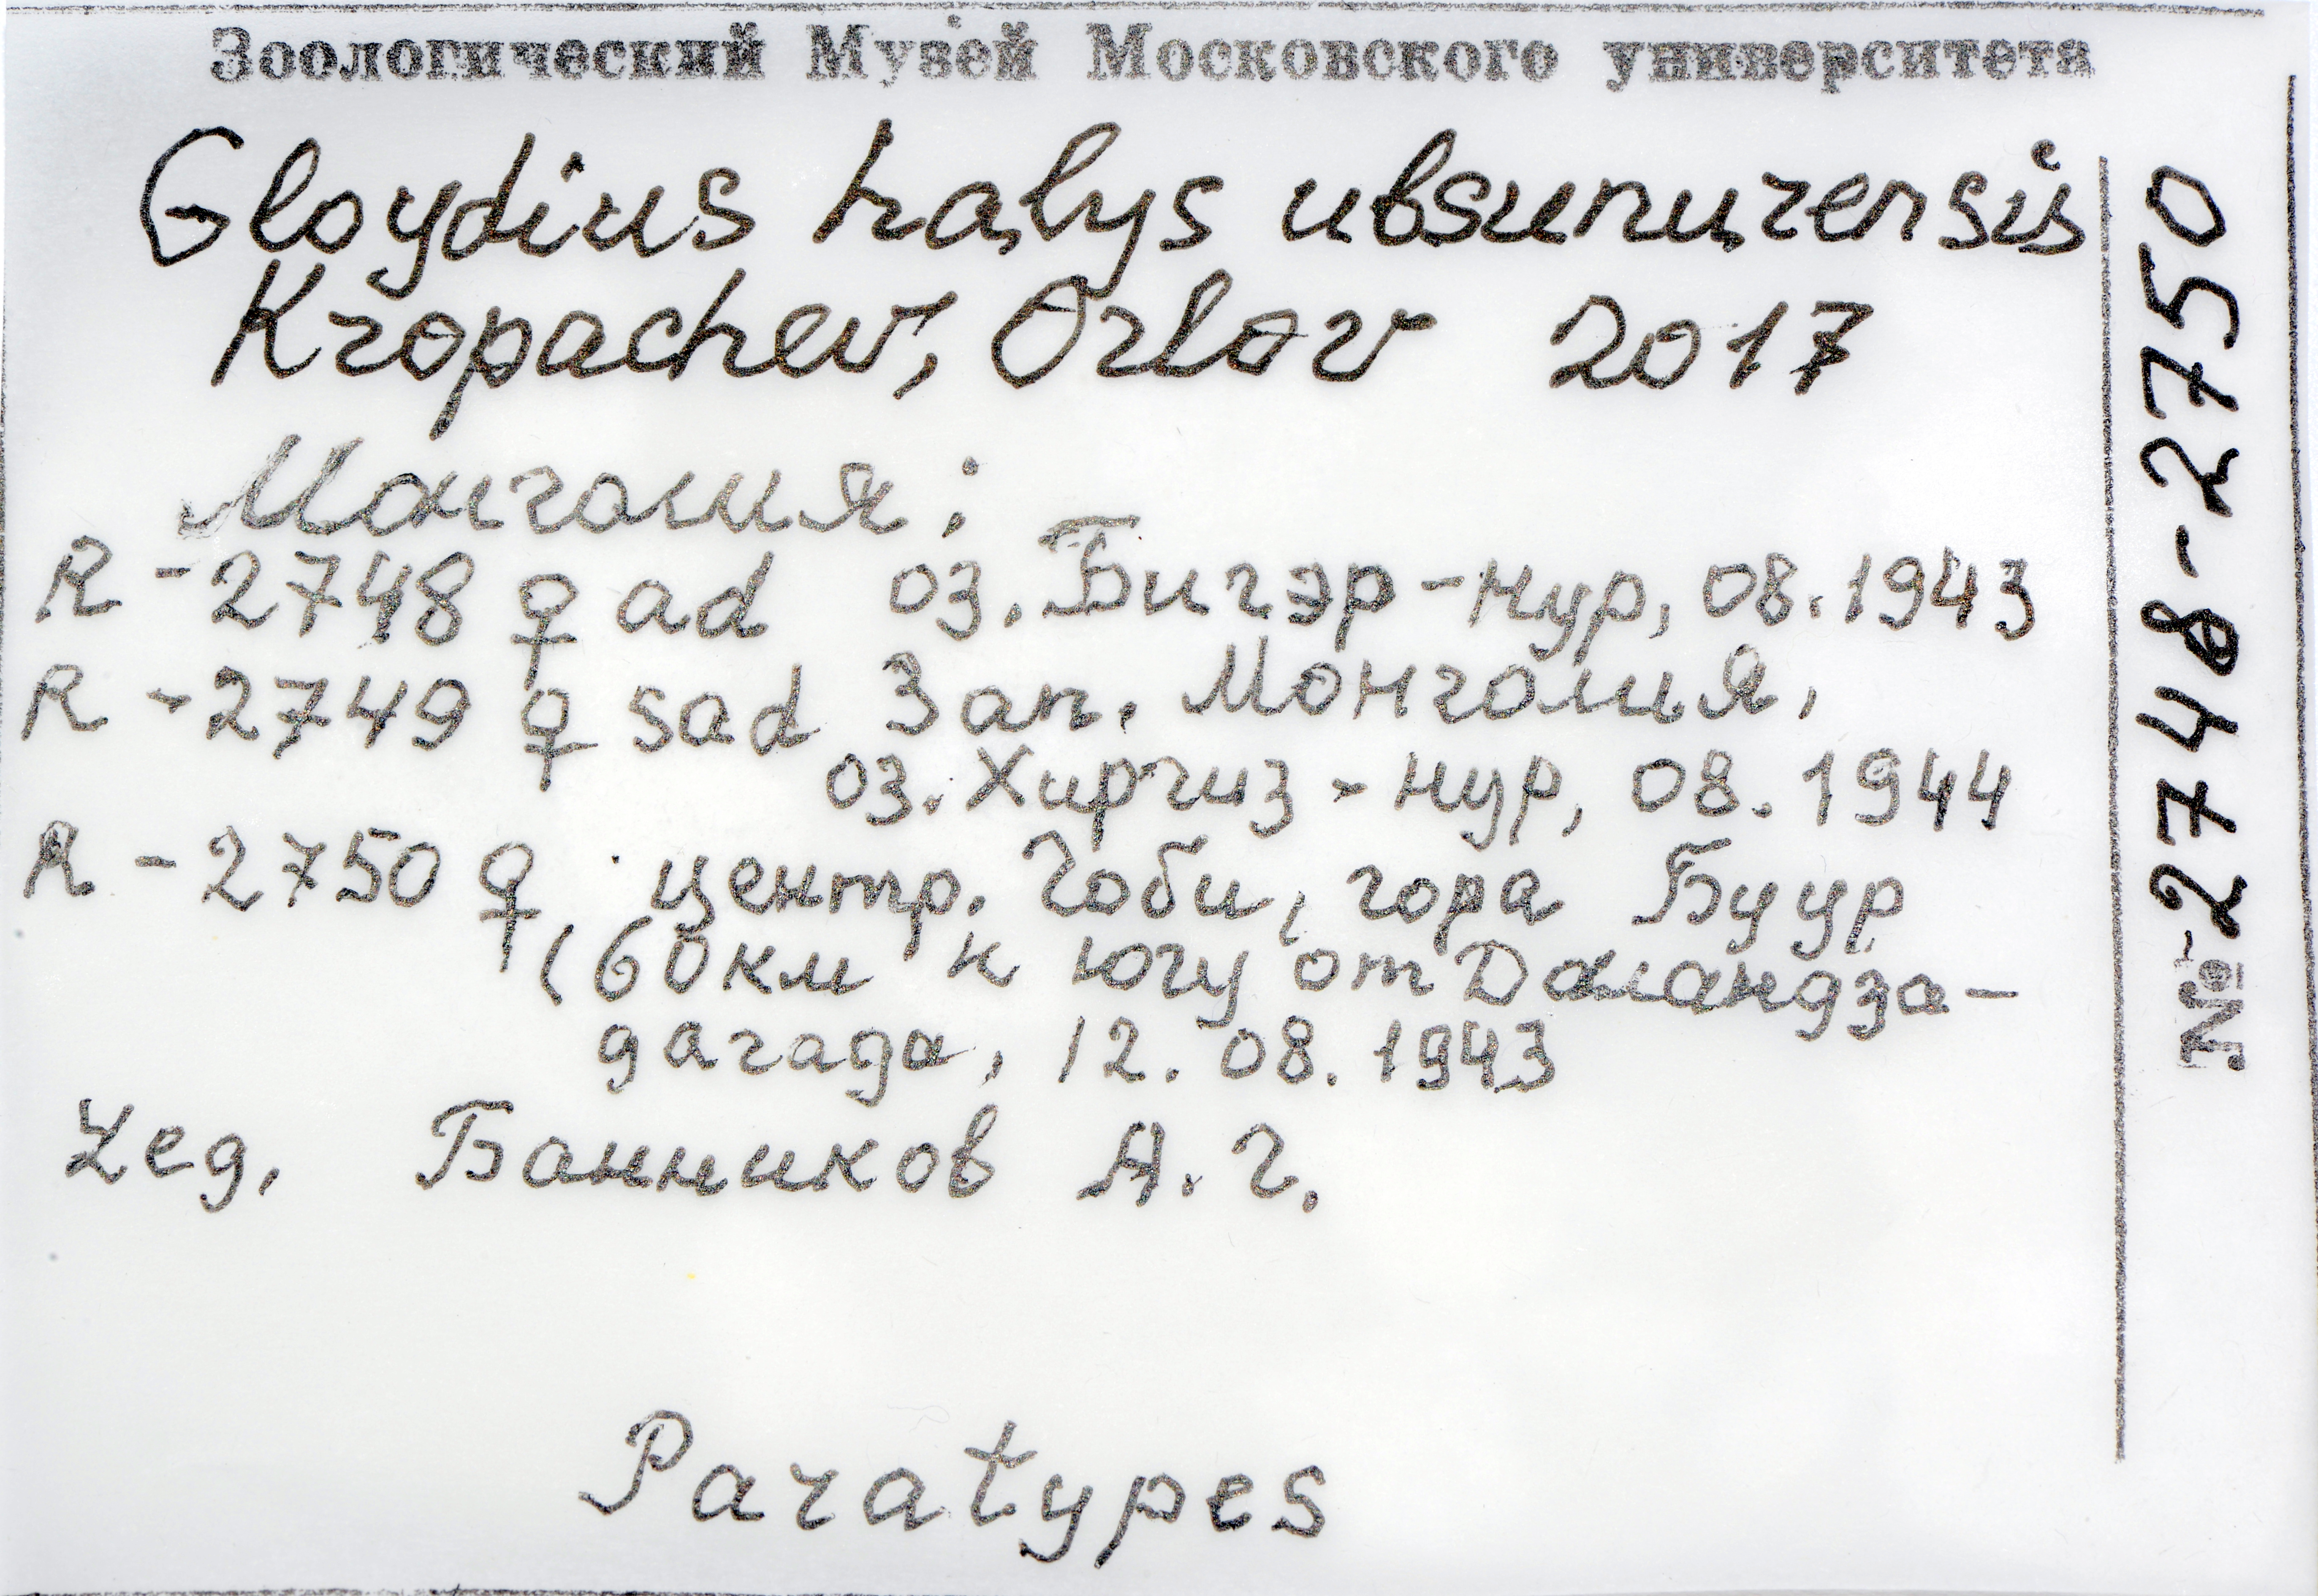 Зоологический Музей Московского университета
Gloydius halys ubsunurensis
Kropachev, Orlov 2017
Монголия:
R - 2748 ♀ ad оз. Бигэр-нур, 08.1943
R - 2749 ♀ sad Зап. Монголия,
оз. Хиргиз-нур, 08.1944
R - 2750 ♀, центр. Гоби, гора Буур
(60км к югу от Даландза-
дагада, 12.08.1943
Leg. Банников А.Г.
Paratypes
№ 2748-2750